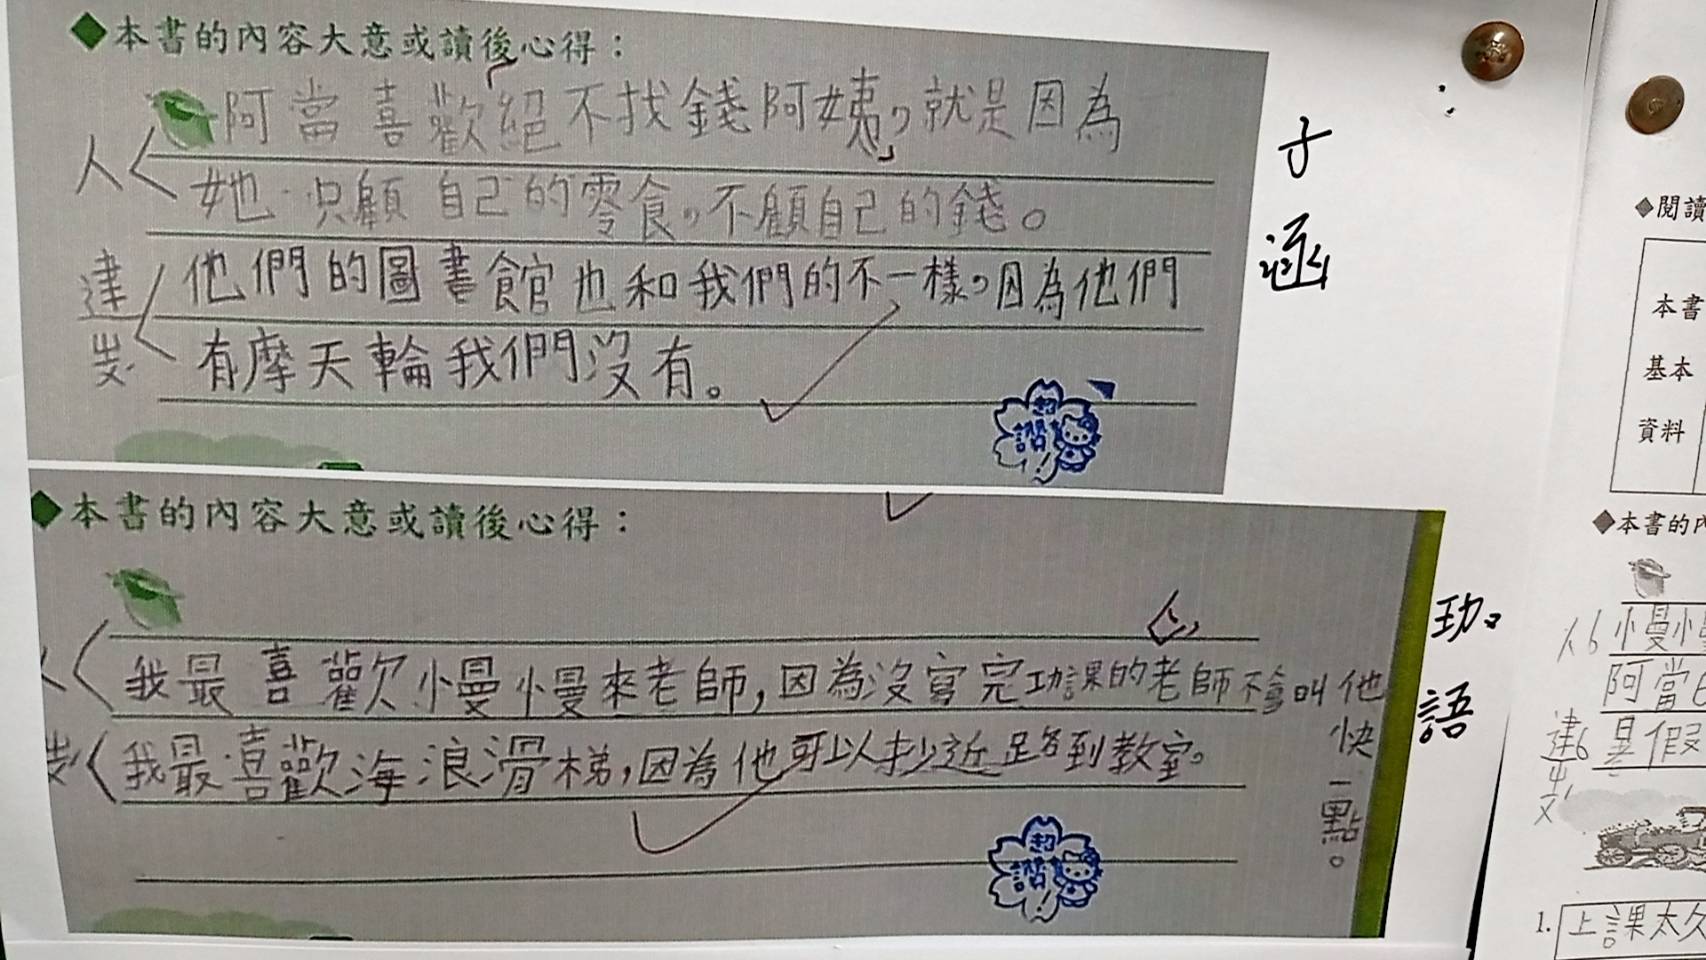 ◆本書的內容大意或讀後心得：
阿當喜歡「絕不找錢阿姨」，就是因為
人
她只顧自己的零食，不顧自己的錢。
建
他們的圖書館也和我們的不一樣，因為他們
有摩天輪我們沒有。
超
讚
!
子
涵
◆本書的內容大意或讀後心得：
人
我最喜歡慢慢來老師，因為沒寫完功課的老師不會叫他
快一點。
我最喜歡海浪滑梯，因為他可以抄近路到教室。
超
讚
!
語
◆閱讀
本書
基本
資料
◆本書的內
人 小慢慢
阿當
建
暑假
1. 上課太久